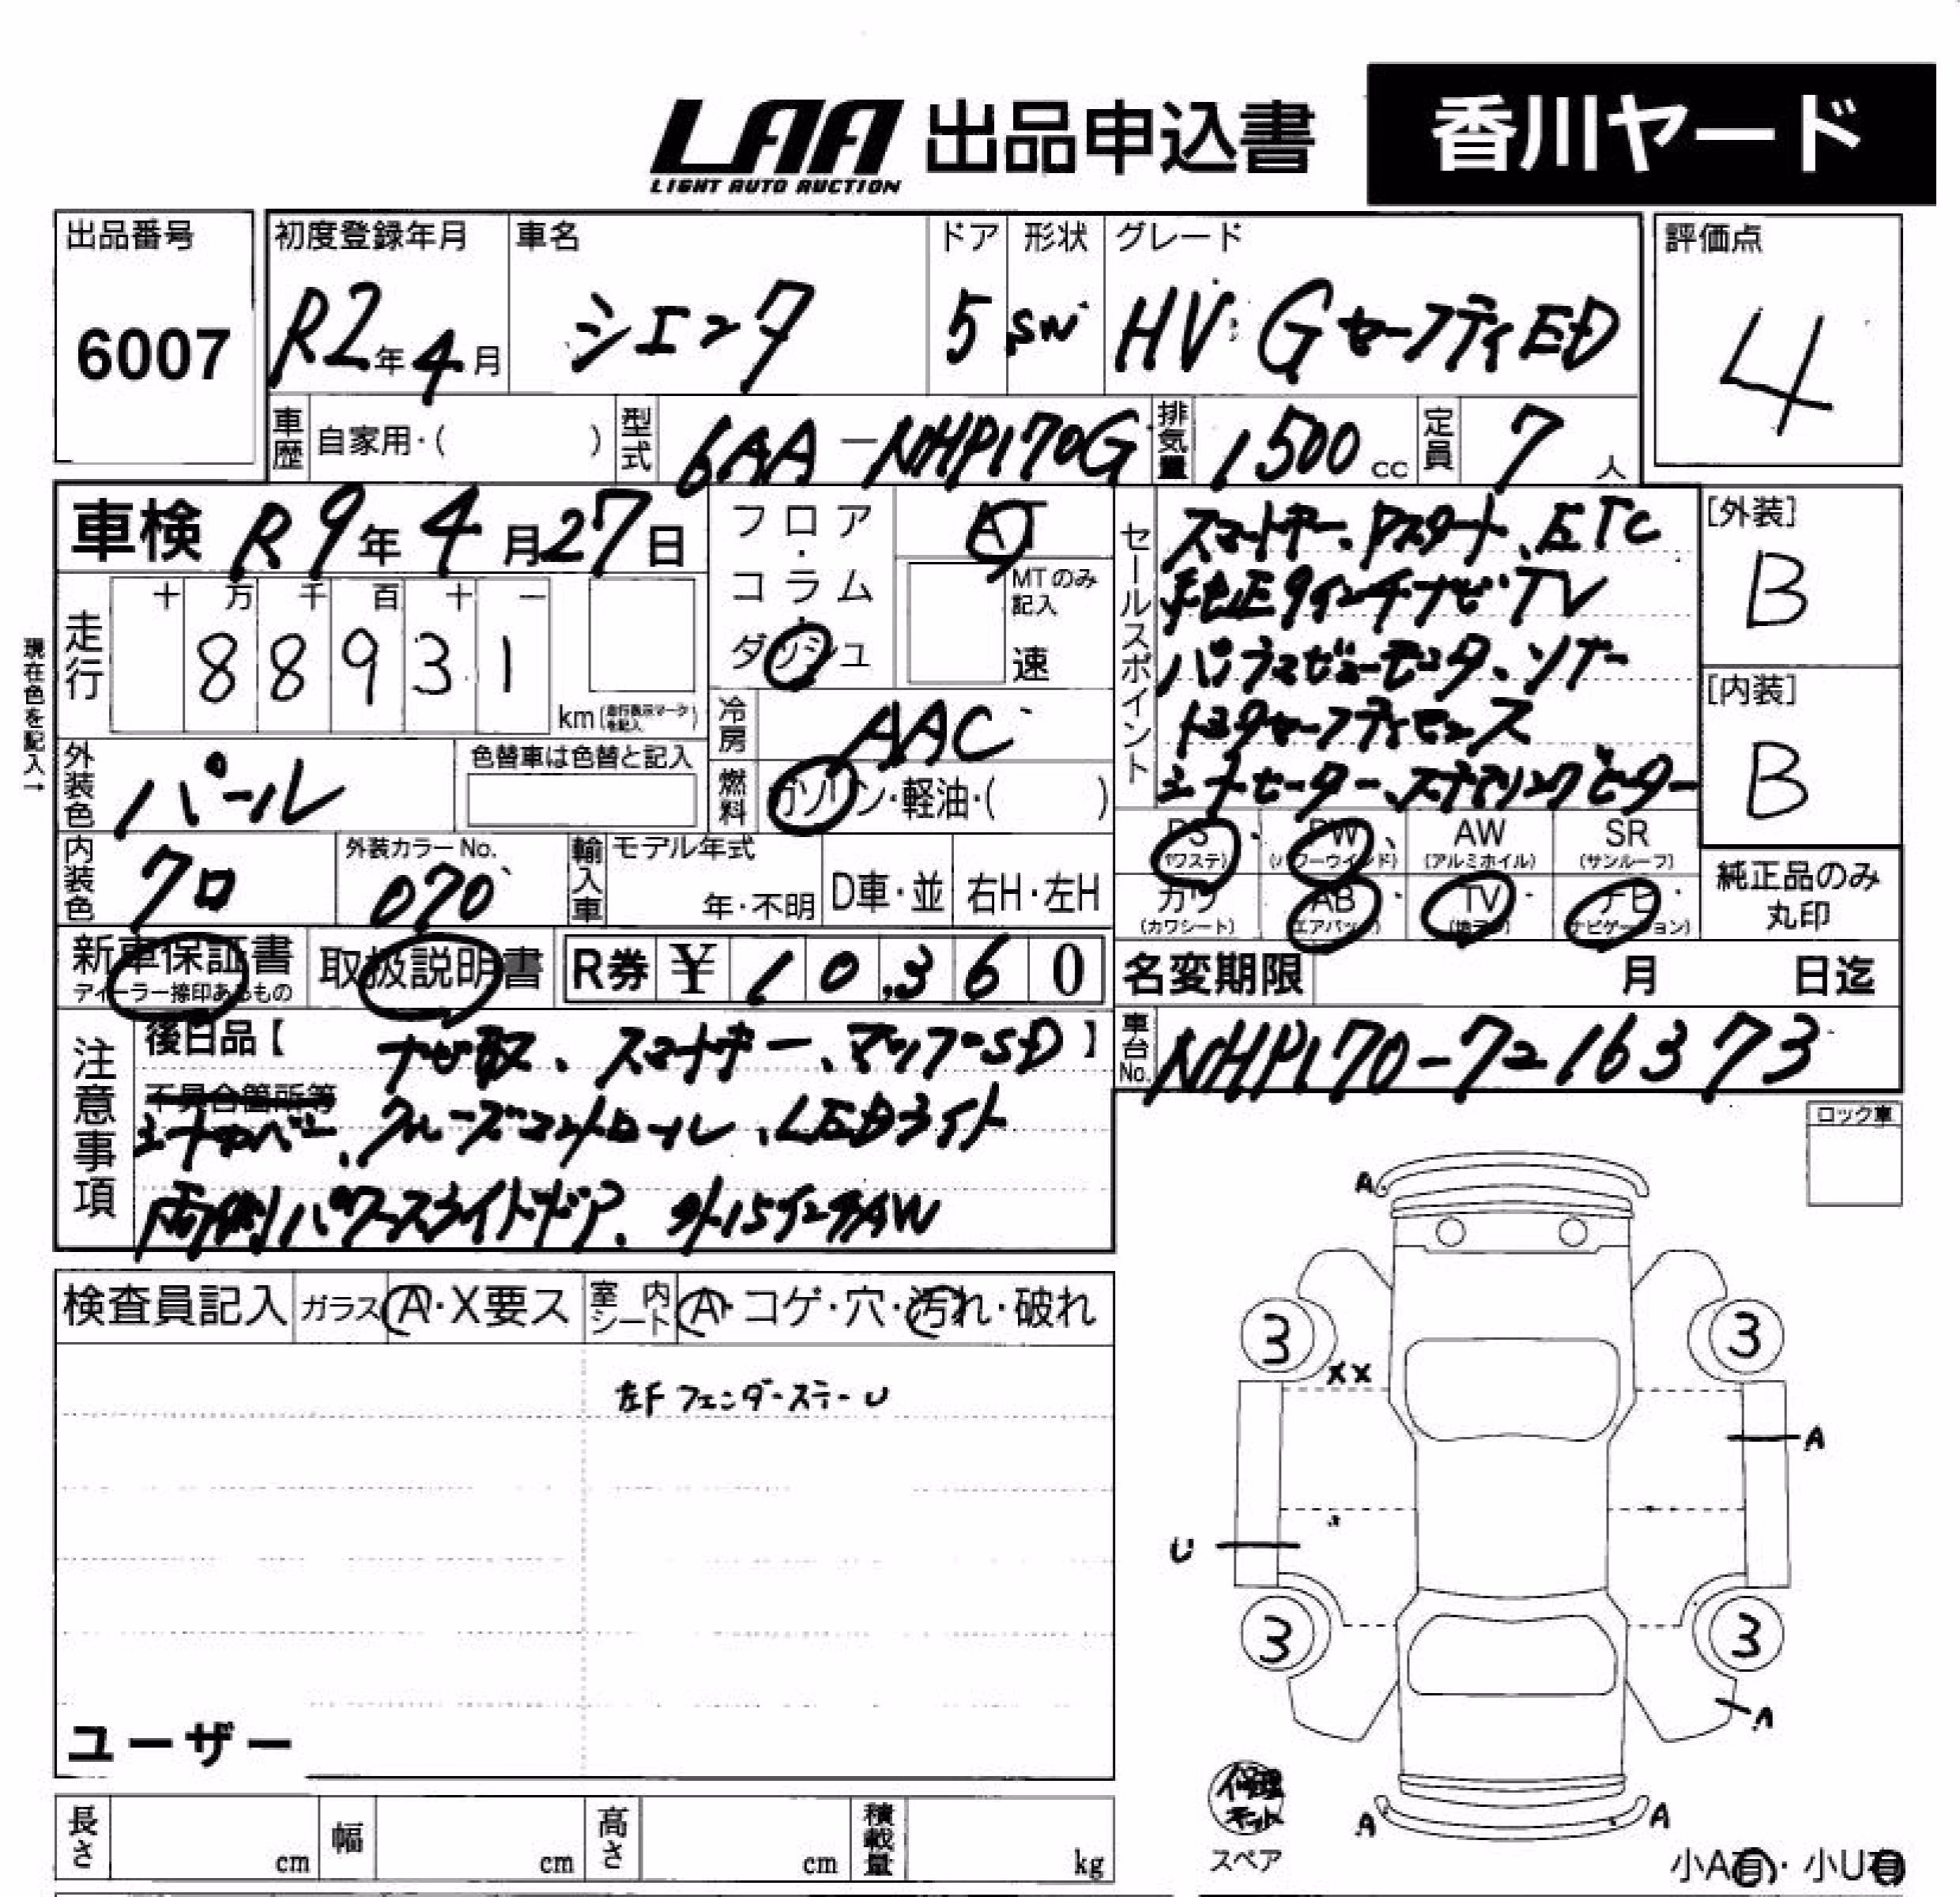 LAA 出品申込書 香川ヤード
LIGHT AUTO AUCTION
出品番号 初度登録年月 車名 ドア 形状 グレード 評価点
6007 R2年4月 シエンタ 5 SW HV G セーフティED 4
車歴 自家用・( ) 型式 6AA-NHP170G 排気量 1500cc 定員 7人
車検 R9年4月27日 フロア・コラム・ダッシュ AT
MTのみ記入 速
セールスポイント
スマートキー、Pスタート、ETC
純正9インチナビTV
パノラマビューモニター、ソナー
トヨタセーフティセンス
シートヒーター、ステアリングヒーター
[外装] B
[内装] B
走行 十 万 千 百 十 一
88931 km (走行表示マークを記入)
現在色を記入→
冷房 AAC
外装色 パール 色替車は色替と記入
燃料 ガソリン・軽油・( )
PS (パワステ) PW (パワーウインド) AW (アルミホイル) SR (サンルーフ)
カワ (カワシート) AB (エアバック) TV (地デジ) ナビ (ナビゲーション)
純正品のみ丸印
内装色 クロ 外装カラーNo. 070 輸入車 モデル年式 年・不明 D車・並 右H・左H
新車保証書 ディーラー捺印あるもの 取扱説明書 R券 ¥10,360
名変期限 月 日迄
注意事項
後日品【 ナビ取、スマートキー、マップSD 】
車台No. NHP170-7216373
不具合箇所等
シートカバー、クルーズコントロール、LEDライト
両側パワースライドドア、外15インチAW
ロック車
検査員記入 ガラス A・X要ス 室内シート A・コゲ・穴・汚れ・破れ
左F フェンダーステーU
ユーザー
A
3 3
XX
A
U
3 3
A
A A
修理キット
スペア
小A有・小U有
長さ cm 幅 cm 高さ cm 積載量 kg